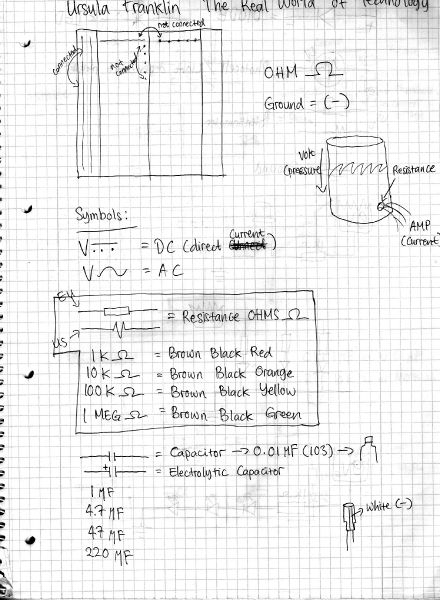 Ursula Franklin The Real World of Technology
not connected
connected
not connected
OHM Ω
Ground = (-)
Volt
(pressure)
Resistance
AMP
(current)
Symbols:
V = DC (direct Current)
V = AC
EU
= Resistance OHMS Ω
US
1K Ω = Brown Black Red
10K Ω = Brown Black Orange
100K Ω = Brown Black Yellow
1 MEG Ω = Brown Black Green
= Capacitor → 0.01MF (103) →
+ = Electrolytic Capacitor
1 MF
4.7 MF
47 MF
220 MF
White (-)